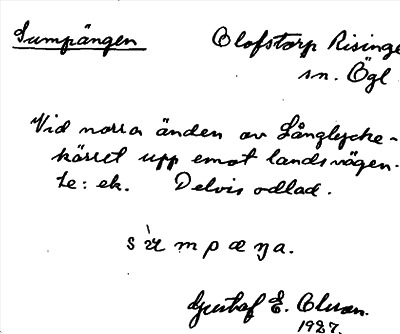 Sumpängen
Olofstorp Risinge
sn. Ögl.
Vid norra änden av Långlycke-
kärret upp emot landsvägen.
Le: ek. Delvis odlad.
Gustaf E. Olson.
1927.